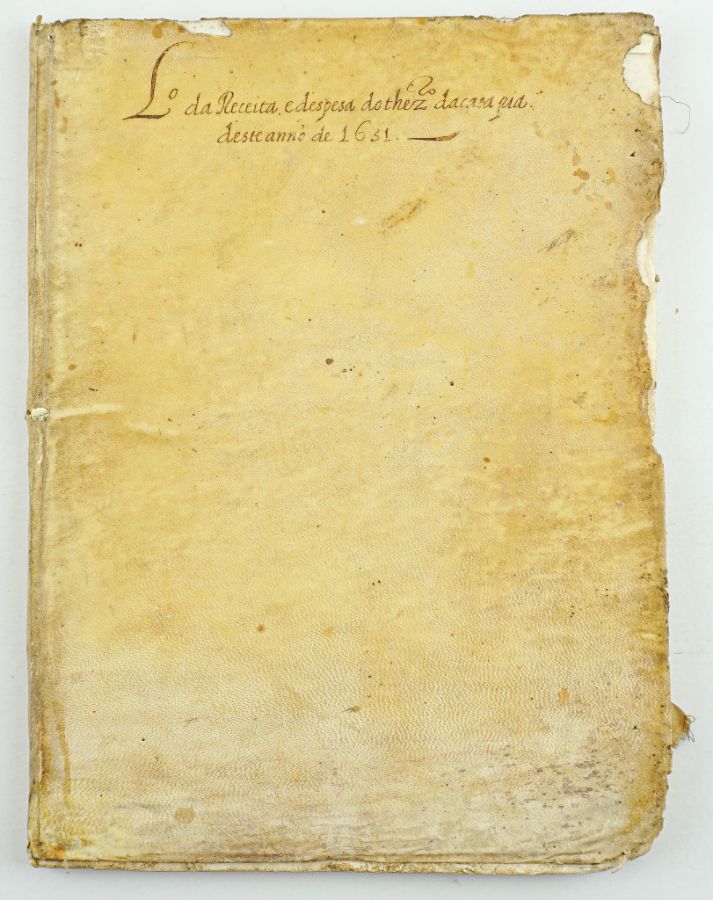 Lo da Receita e despesa do thezro da casa pia
deste anno de 1631.